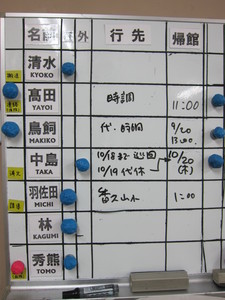 名前 外 行先 帰館
清水
KYOKO
髙田 時調 11:00
YAYOI
鳥飼 代・時調 9/20
MAKIKO 13:00
中島 10/18まで 巡回 10/20
TAKA 10/19 代休 (木)
羽佐田 1:00
MICHI
林
KAGUMI
秀熊
TOMO